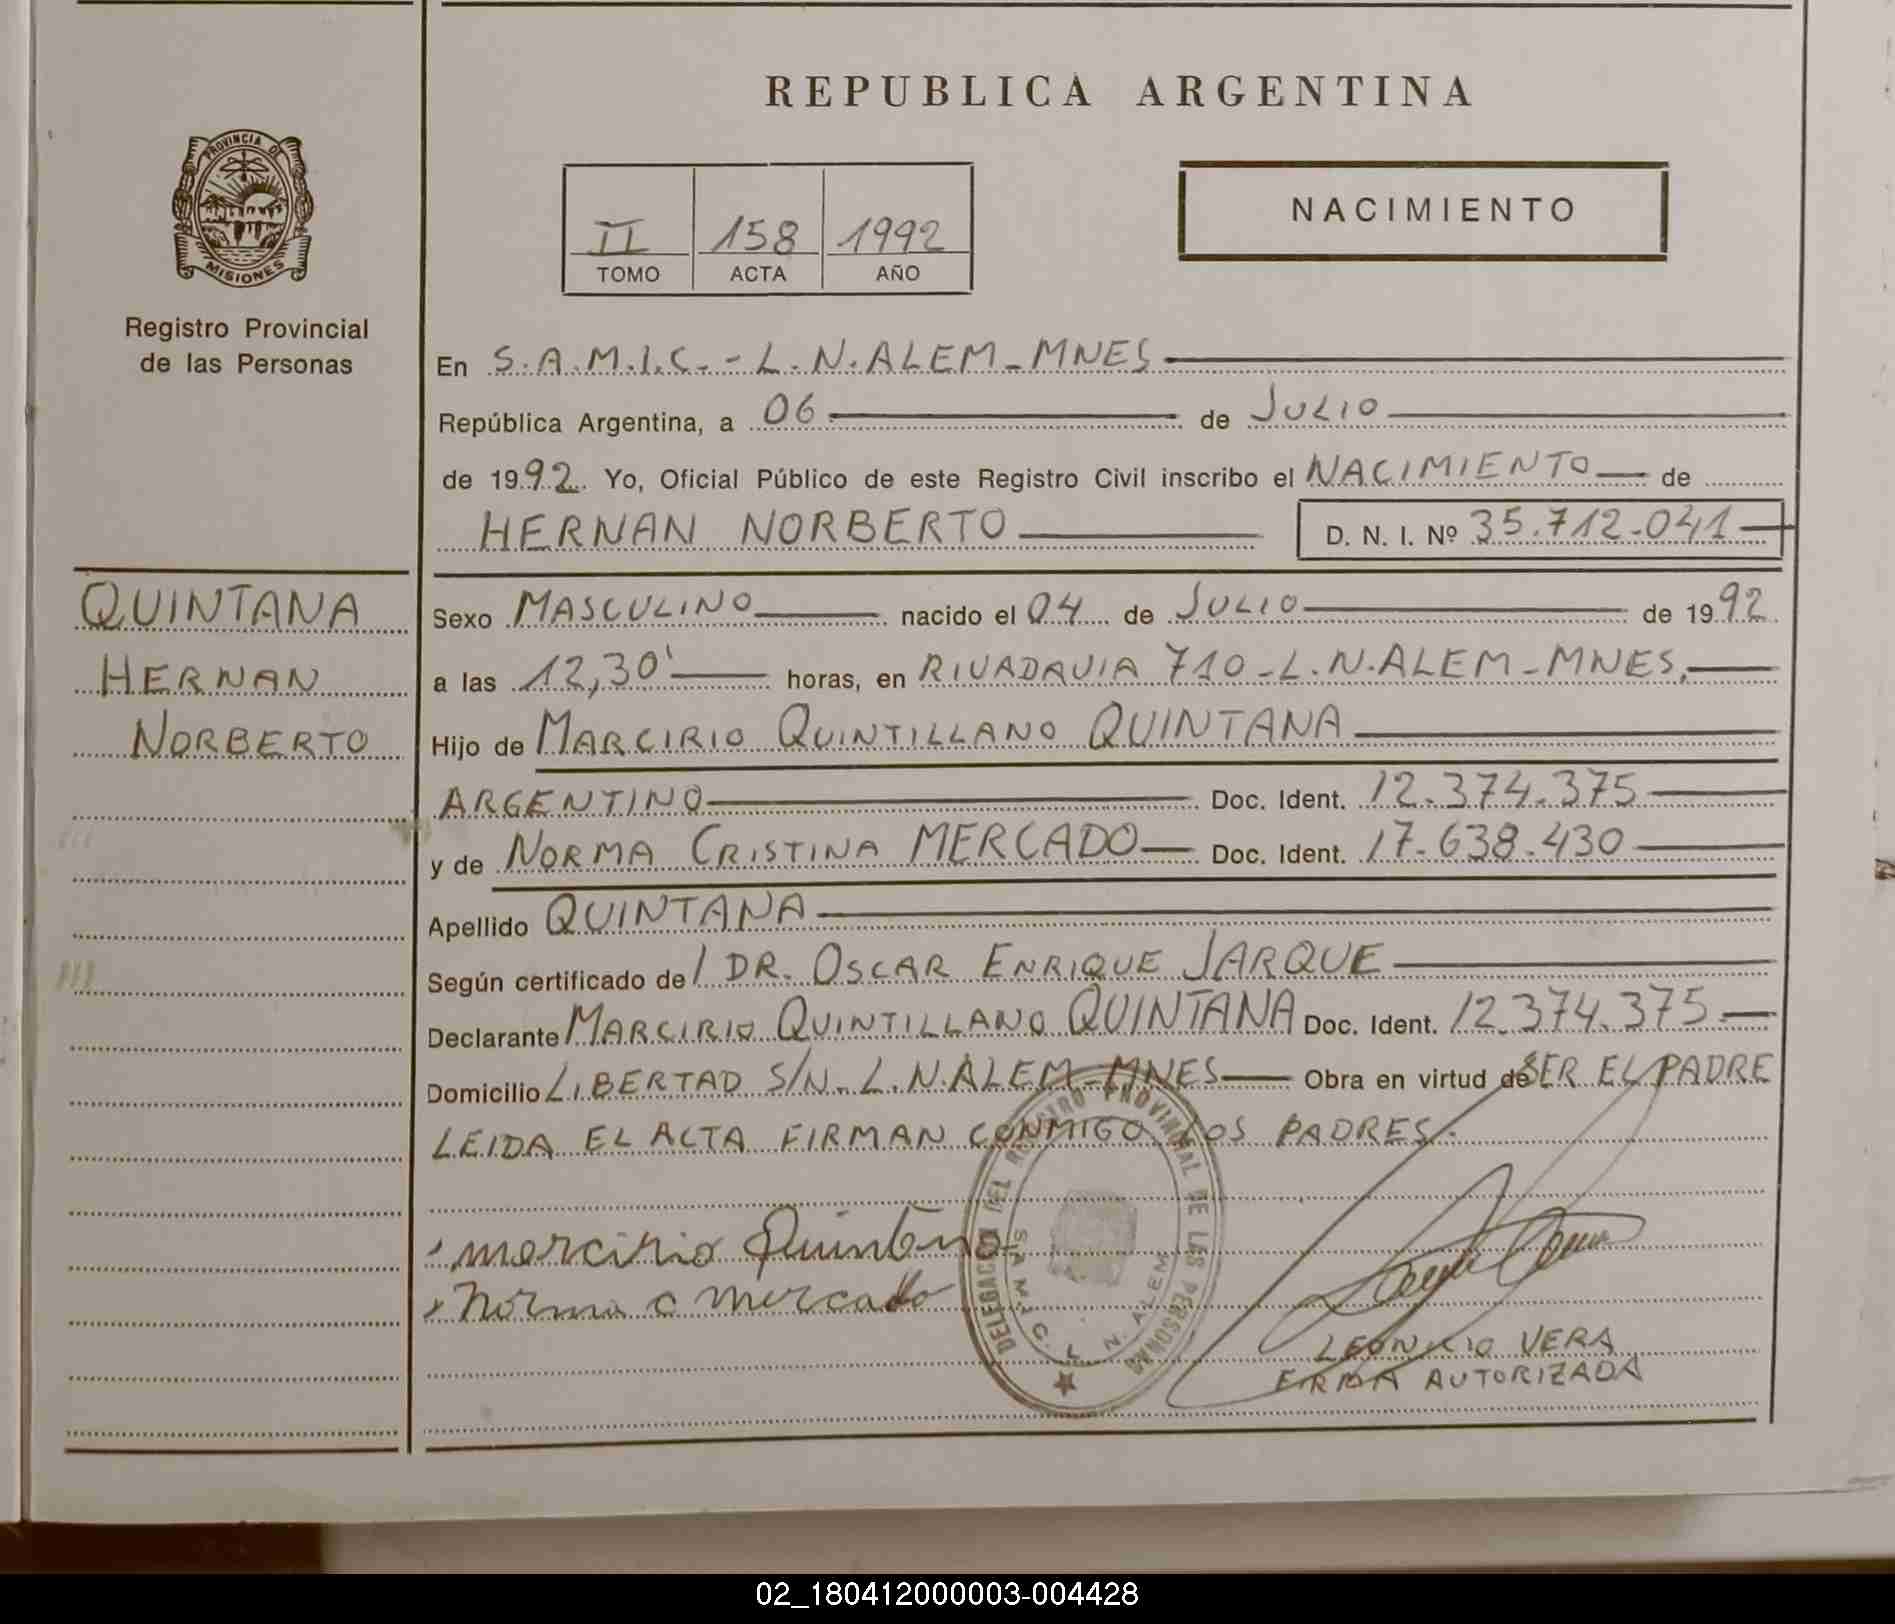 REPUBLICA ARGENTINA
PROVINCIA DE
MISIONES
Registro Provincial
de las Personas
II 158 1992
TOMO ACTA AÑO
NACIMIENTO
En S.A.M.I.C.-L.N.ALEM-MNES
República Argentina, a 06 de JULIO
de 1992 Yo, Oficial Público de este Registro Civil inscribo el NACIMIENTO de
HERNAN NORBERTO D. N. I. Nº 35.712.041
QUINTANA
HERNAN
NORBERTO
Sexo MASCULINO nacido el 04 de JULIO de 1992
a las 12,30' horas, en RIVADAVIA 710-L.N.ALEM-MNES.
Hijo de MARCIRIO QUINTILLANO QUINTANA
ARGENTINO Doc. Ident. 12.374.375
y de NORMA CRISTINA MERCADO Doc. Ident. 17.638.430
Apellido QUINTANA
Según certificado de / DR. OSCAR ENRIQUE JARQUE
Declarante MARCIRIO QUINTILLANO QUINTANA Doc. Ident. 12.374.375
Domicilio LIBERTAD S/N-L.N.ALEM-MNES Obra en virtud de SER EL PADRE
LEIDA EL ACTA FIRMAN CONMIGO LOS PADRES.
marcirio Quintana
Norma c mercado
DELEGACION DEL REGISTRO PROVINCIAL DE LAS PERSONAS
S.A.M.I.C. L.N. ALEM
LEONICIO VERA
FIRMA AUTORIZADA
02_180412000003-004428